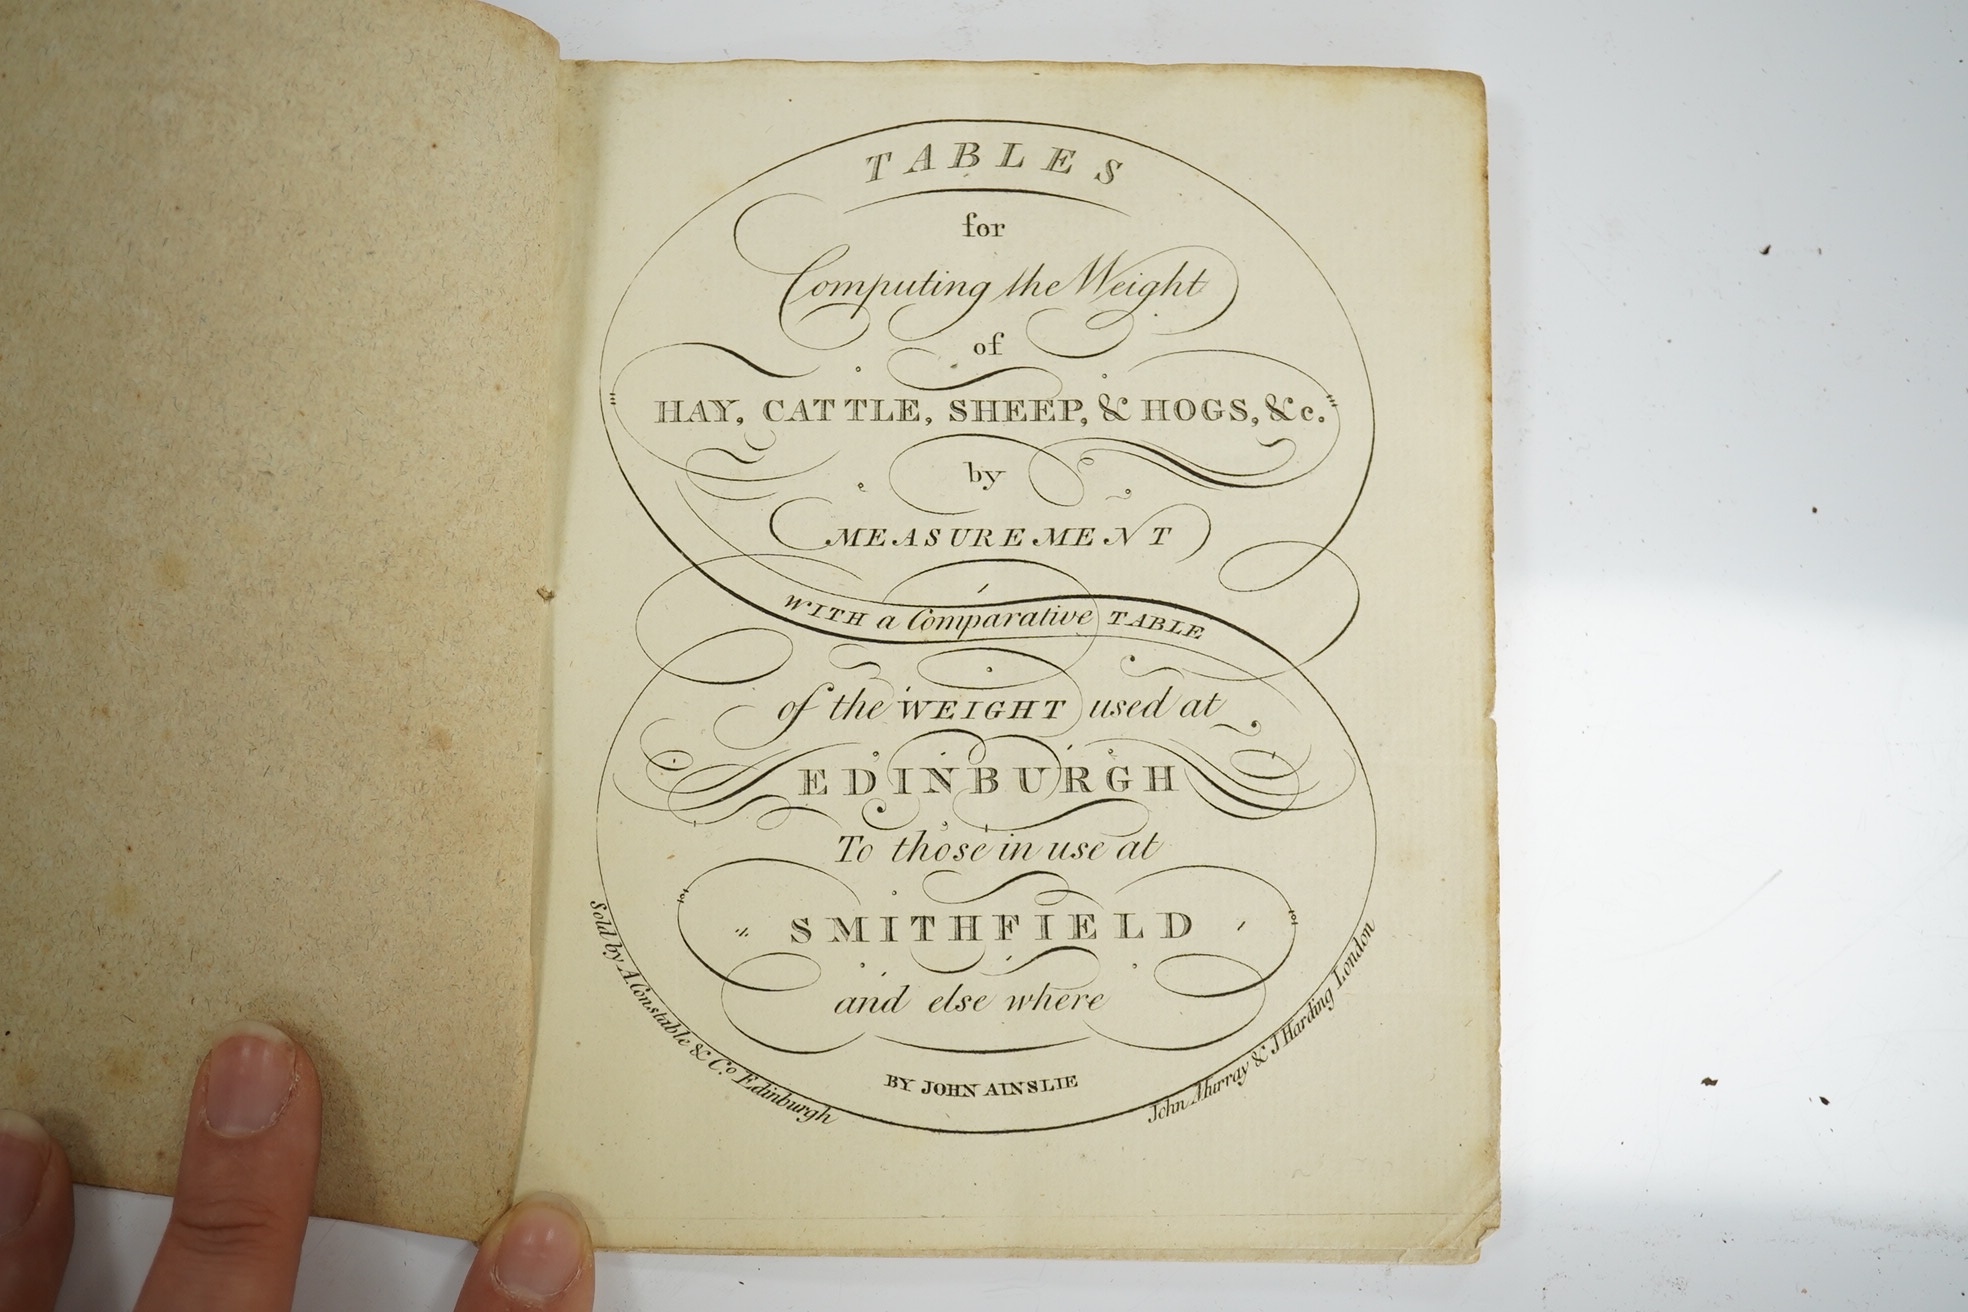 TABLES
for
Computing the Weight
of
HAY, CATTLE, SHEEP, & HOGS, &c.
by
MEASUREMENT
WITH a Comparative TABLE
of the WEIGHT used at
EDINBURGH
To those in use at
SMITHFIELD
and else where
BY JOHN AINSLIE
Sold by A. Constable & Co. Edinburgh
John Murray & J Harding London